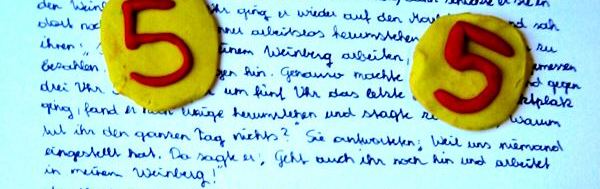 den Weinb ging er wieder auf den Mar und sah
dort noch arbeitslos herumstehen zu
ihnen: „ meinem Weinberg arbeiten, messen
bezahlen. gen hin. Genauso machte gegen
drei Uhr um fünf Uhr das letzte ktplatz
ging, fand er noch einige herumstehen und sagte warum
tut ihr den ganzen Tag nichts?" Sie antworteten: Weil uns niemand
eingestellt hat. Da sagte er: „Geht auch ihr noch hin und arbeitet
in meinem Weinberg!"
5
5